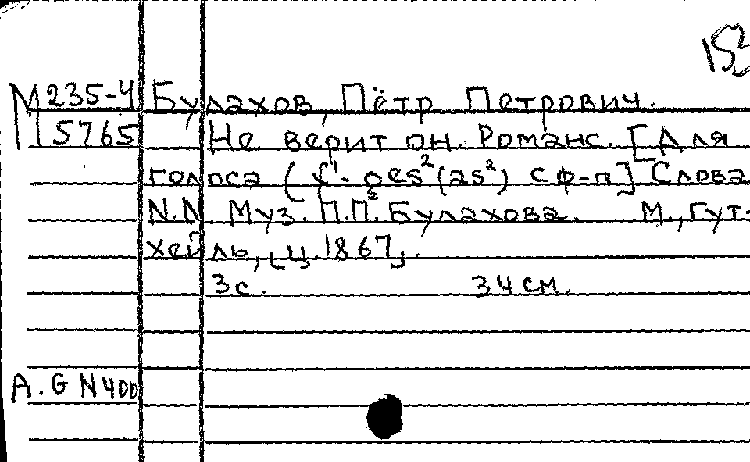 152
М 235-4 Булахов, Пётр Петрович.
5765 Не верит он. Романс. [Для
голоса (f¹-ges²(as²) с ф-п] Слова
N.N Муз. П.П. Булахова. М., Гут-
хейль, [ц. 1867].
3 с. 34 см.
A. G N400